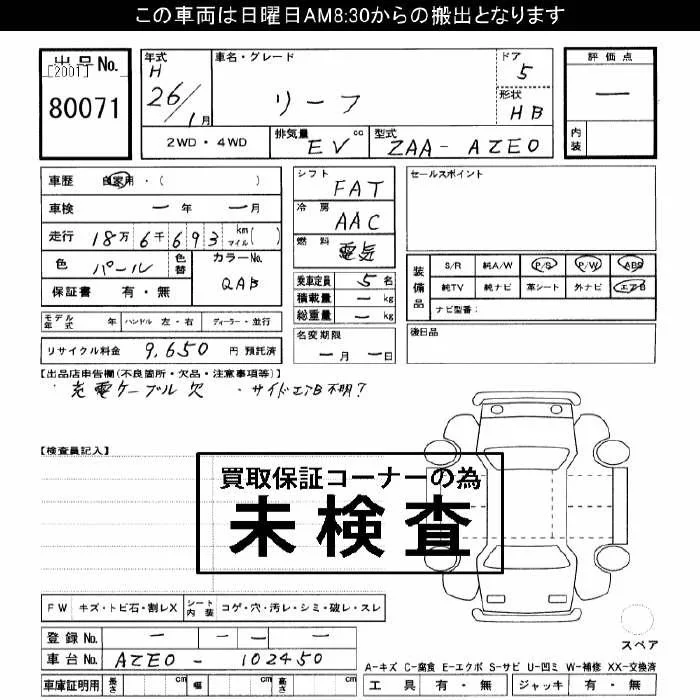 この車両は日曜日AM8:30からの搬出となります
出品No.
[2001]
80071
年式
H
26/1月
車名・グレード
リーフ
ドア
5
形状
HB
2WD・4WD
排気量
EV cc
型式
ZAA-AZE0
評価点
ー
内装
車歴 自家用・( )
車検 ー年 ー月
走行 18万6千693 km マイル( )
色 パール 色替
カラーNo.
QAB
保証書 有・無
シフト
FAT
冷房
AAC
燃料
電気
乗車定員 5名
積載量 ー kg
総重量 ー kg
セールスポイント
装備品
S/R 純A/W P/S P/W ABS
純TV 純ナビ 革シート 外ナビ エアB
ナビ型番:
モデル年式 年 ハンドル 左・右 ディーラー・並行
リサイクル料金 9,650 円 預託済
名変期限
ー月 ー日
後日品
【出品店申告欄(不良箇所・欠品・注意事項等)】
充電ケーブル欠 ・サイドエアB不明?
【検査員記入】
買取保証コーナーの為
未検査
FW キズ・トビ石・割レX シート内装 コゲ・穴・汚レ・シミ・破レ・スレ
スペア
登録No. ー ー ー ー
車台No. AZE0 - 102450
車庫証明用 長さ cm 幅 cm 高さ cm
A-キズ C-腐食 E-エクボ S-サビ U-凹ミ W-補修 XX-交換済
工具 有・無 ジャッキ 有・無